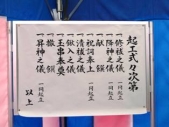 起工式次第
一修祓之儀 一同起立
一降神之儀 一同起立
一献饌
一祝詞奏上 一同起立
一清祓之儀
一鍬入之儀
一玉串奉奠
一撤饌
一昇神之儀 一同起立
以上